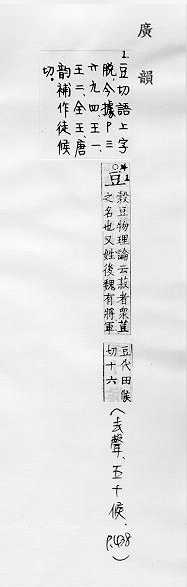 廣韻
1.豆切語上字
脫,今據P三
六九四、王一、
王二、全王、唐
韻補作徒候
切。
豆1
穀豆物理論云菽者眾荳
之名也又姓後魏有將軍
豆代田候
切十六
(去聲、五十候、P.438)